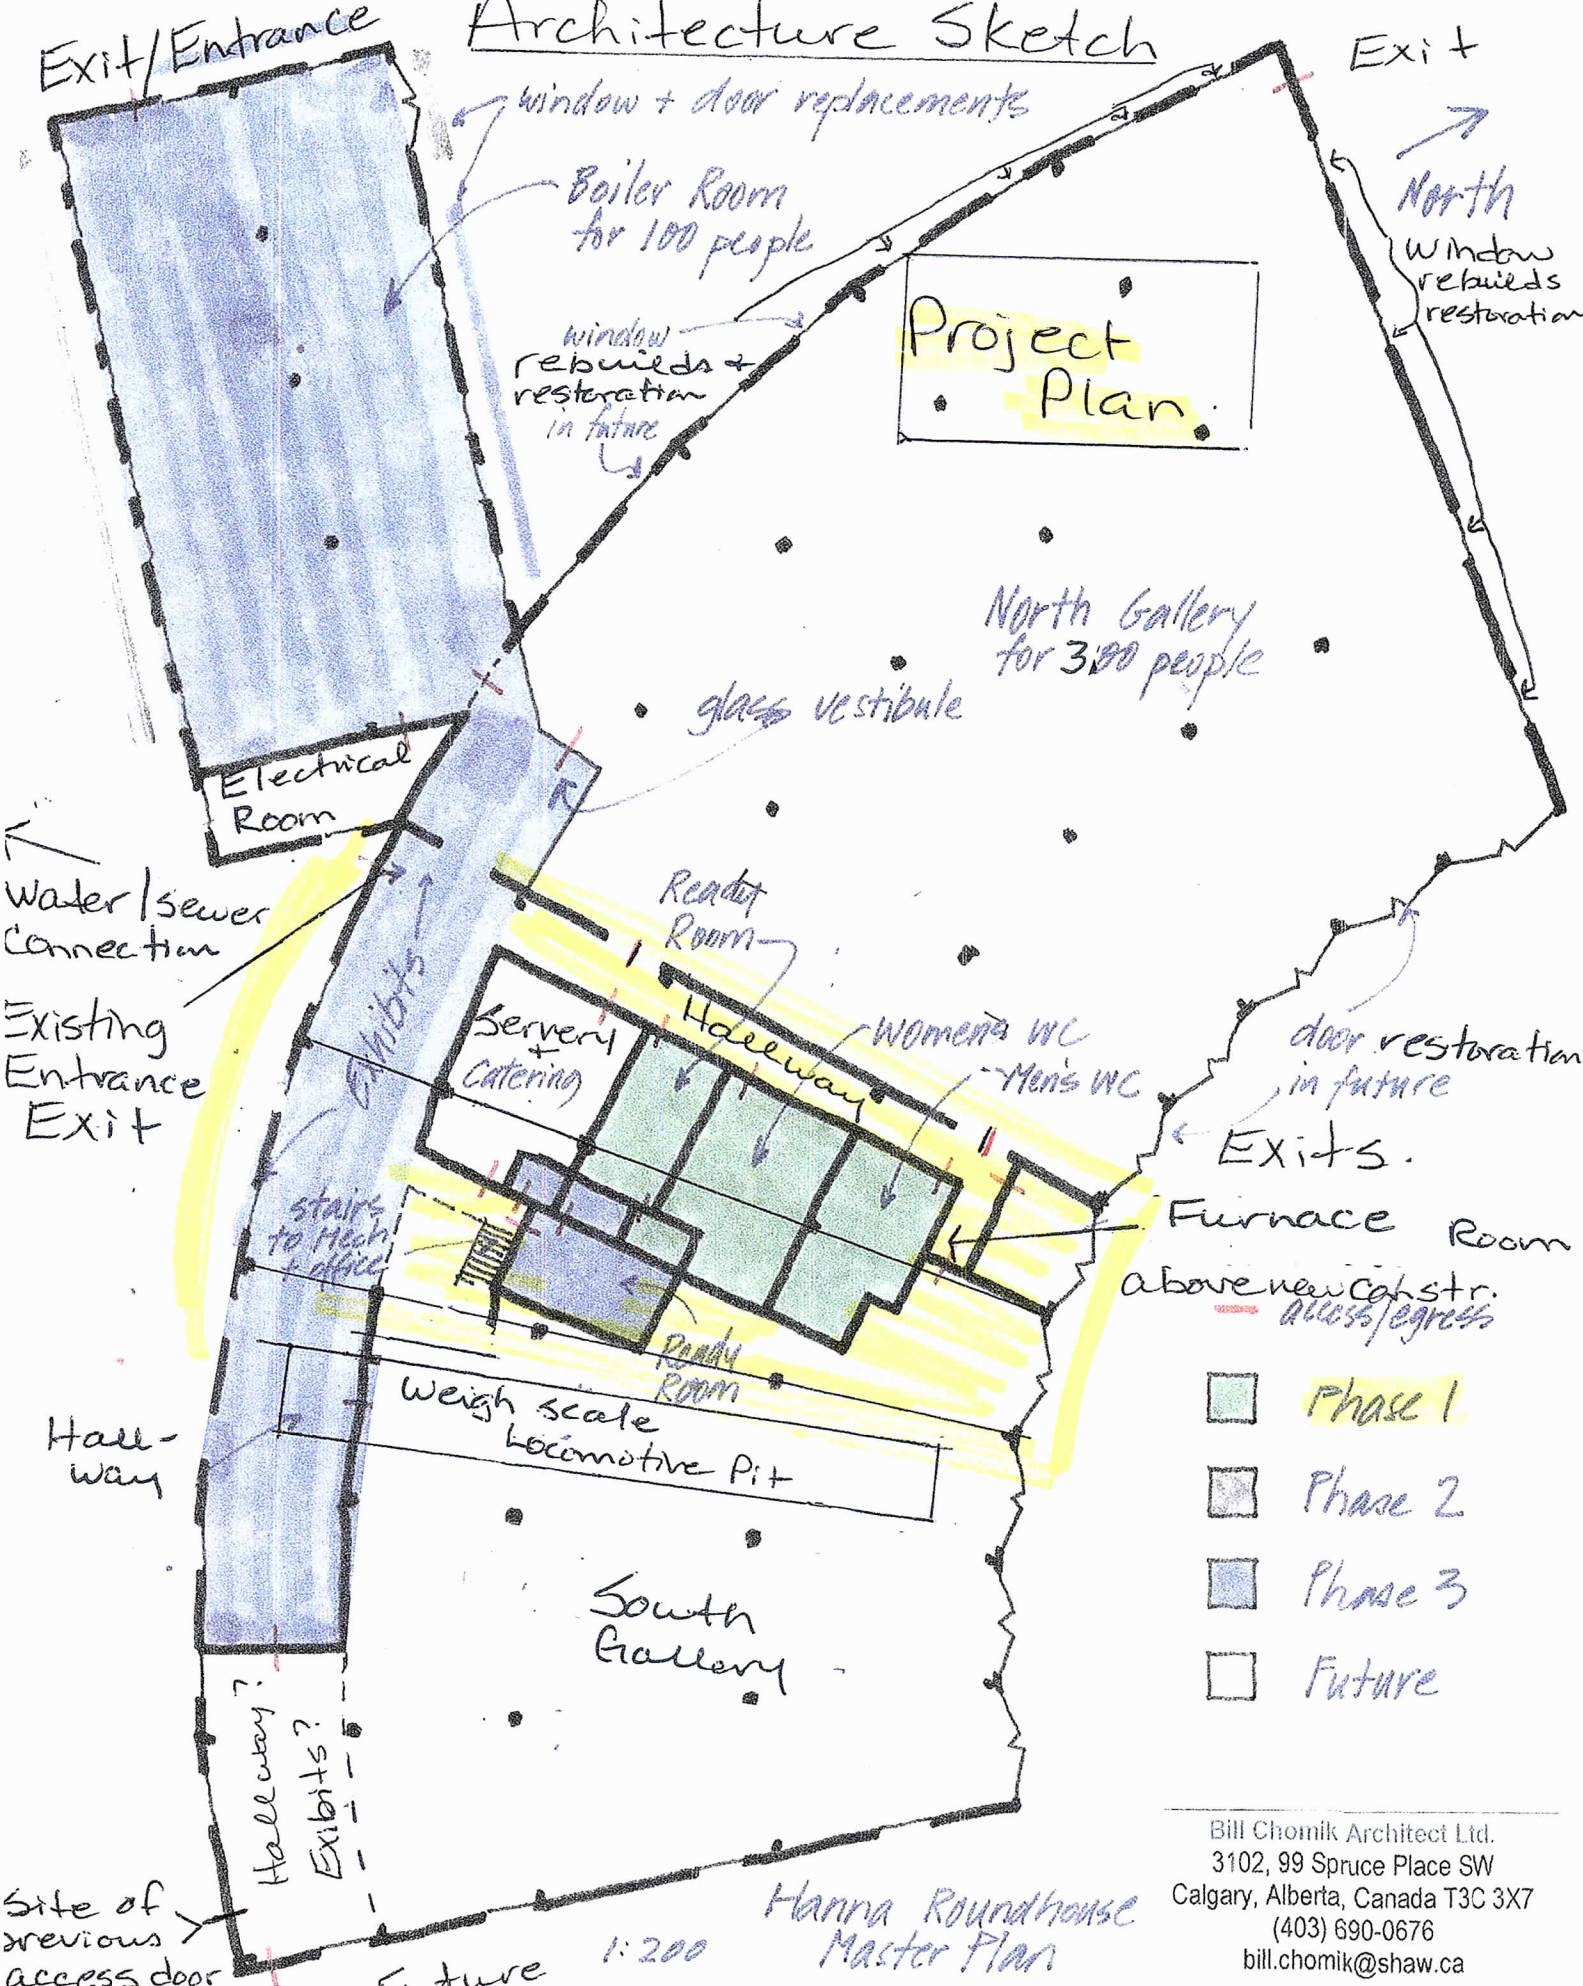 Architecture Sketch
Exit/Entrance
Exit
window + door replacements
North
Boiler Room
for 100 people
window
rebuilds
restoration
Project
Plan.
window
rebuilds +
restoration
in future
North Gallery
for 300 people
glass vestibule
Electrical
Room
Water/sewer
Connection
Ready
Room
Existing
Entrance
Exit
Exhibits
Servery
+
Catering
Hallway
Women's WC
Men's WC
door restoration
in future
Exits.
stairs
to Mech
+ office
Furnace Room
above new constr.
access/egress
Ready
Room
Weigh scale
Locomotive Pit
Hall-
way
Phase 1
Phase 2
Phase 3
Future
South
Gallery
Hallway?
Exibits?
Site of
previous
access door
Future
1:200
Hanna Roundhouse
Master Plan
Bill Chomik Architect Ltd.
3102, 99 Spruce Place SW
Calgary, Alberta, Canada T3C 3X7
(403) 690-0676
bill.chomik@shaw.ca